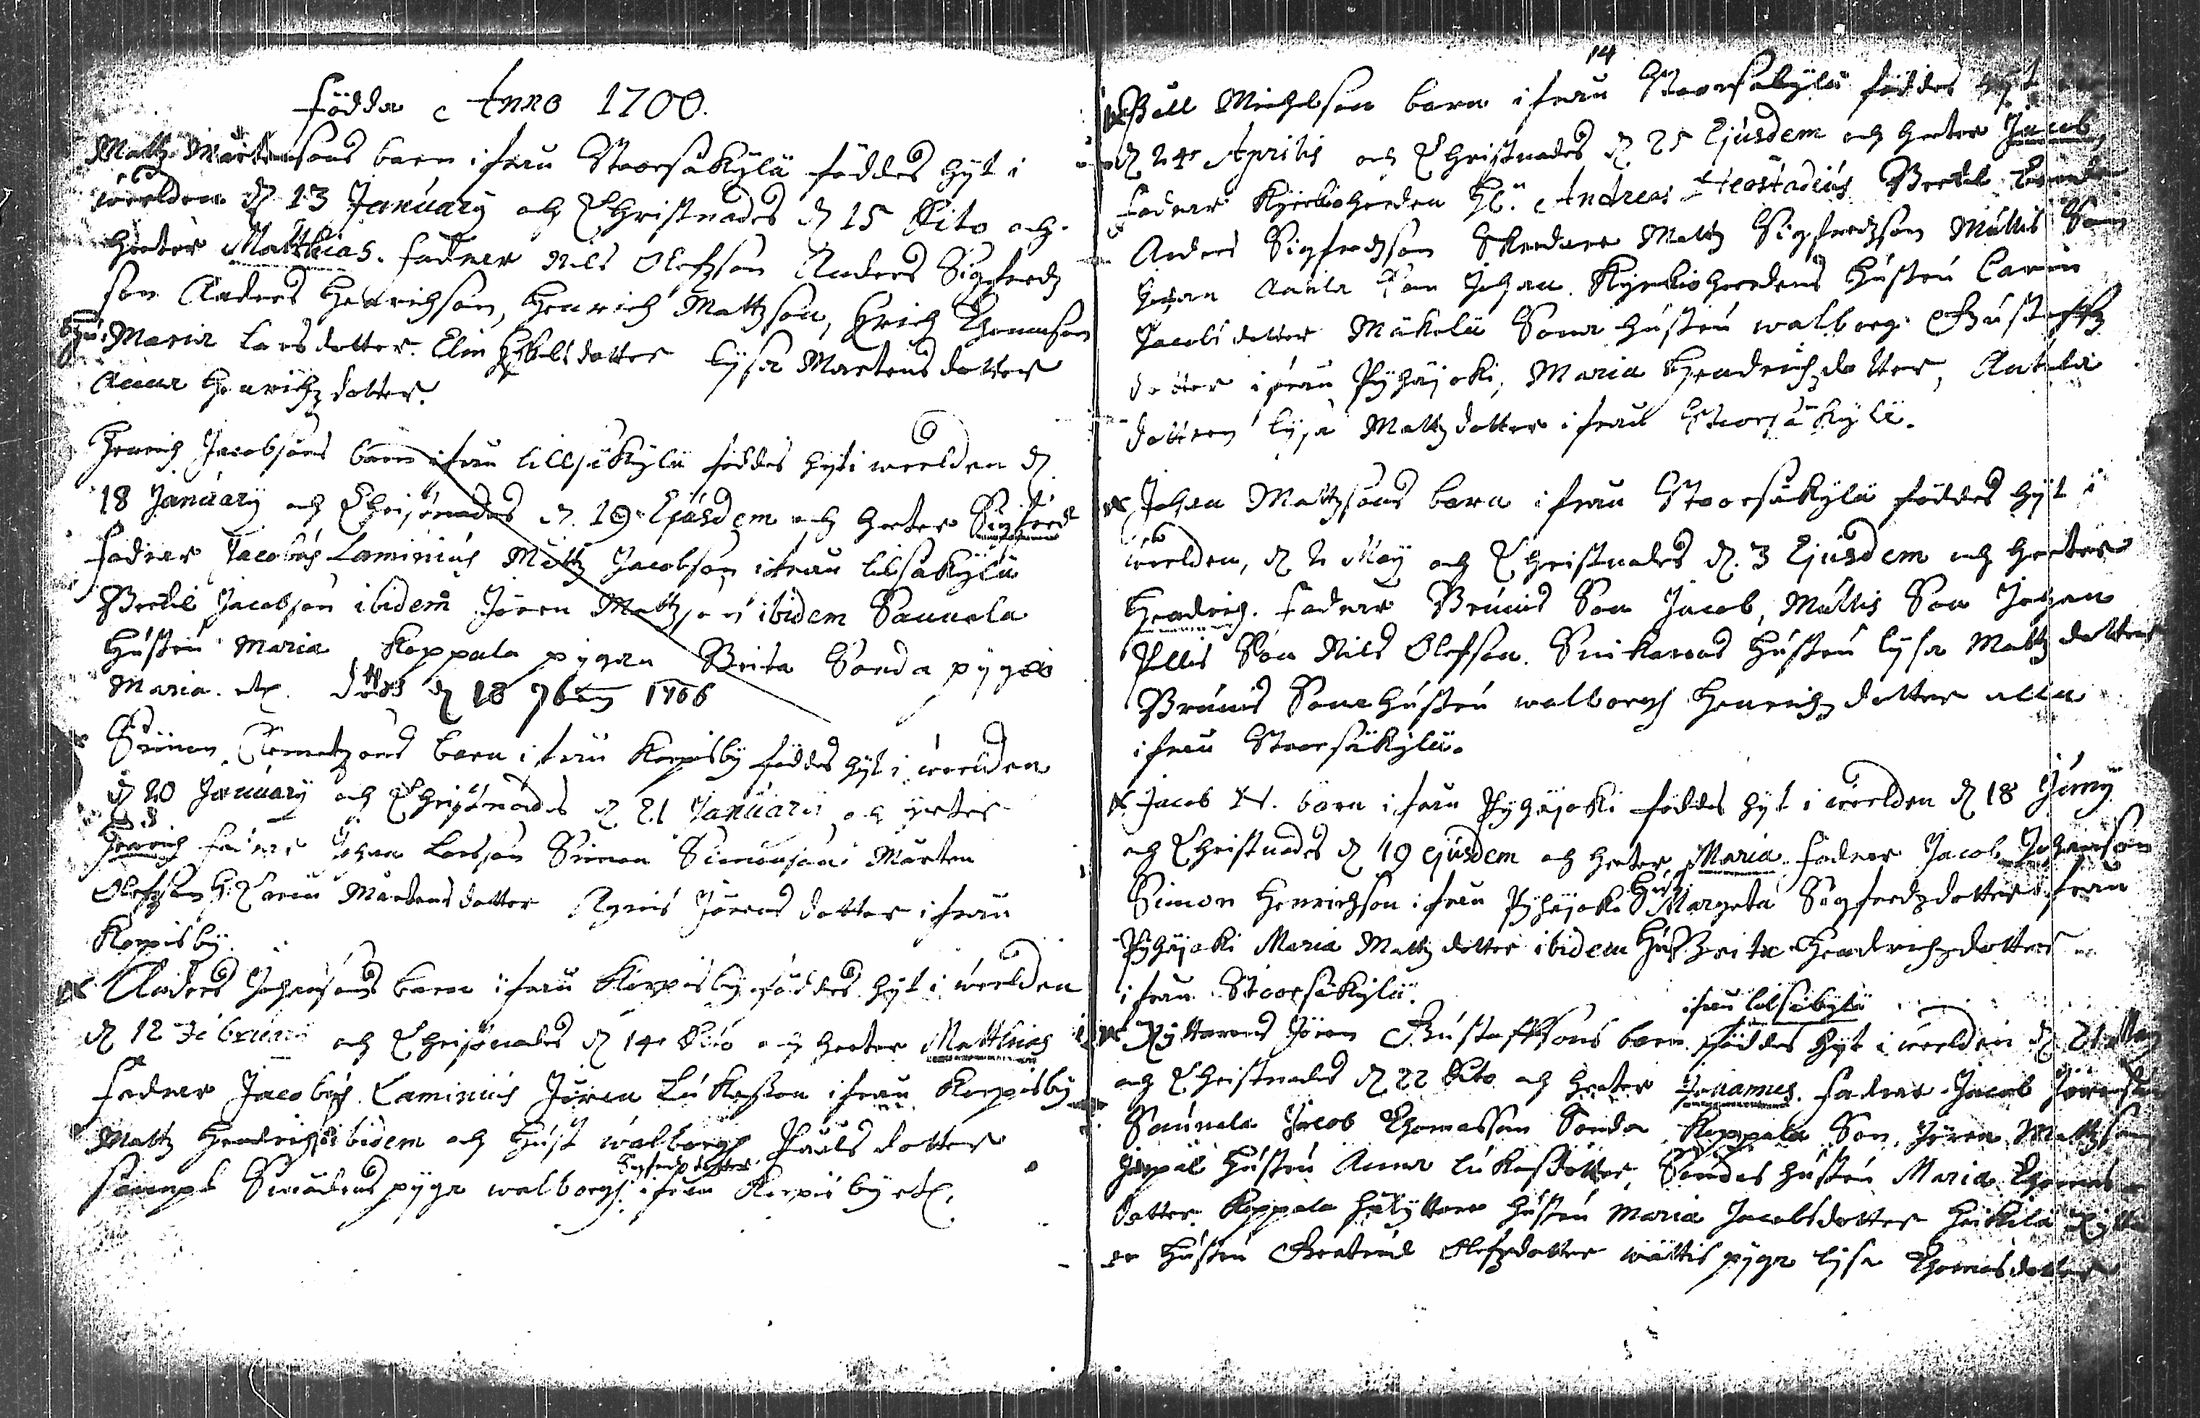 Födda Anno 1700.
Matz Mårtensons barn ifrån Stoorsäkylä föddes hijt i
werlden d 13 January och Christnades d 15 Dito och
heeter Matthias. Fadrar Nils Olofzson Anders Sigfredz
son Anders Hendrichson, Henrich Mattzson, Erich Thomasson
Hu: Maria Larsdotter. Elin dotter Lysa Mårtensdotter
Anna Henrichzdotter.
Henrich Jacobsons barn ifrån Lillsäkylä föddes hijt i werlden d
18 January och Christnades d. 19 Ejusdem och heeter Sigfred
Fadrar Jacobus Laminius Matz Jacobson ifrån Lilsäkylä
Bertil Jacobson ibidem Jören Mattzson ibidem Saunala
Hustru Maria Koppala pigan Brita Sonda pigan
Maria etc. döds d 18 7bris 1706
Simon barn ifrån Korpisby föddes hijt i werlden
d 20 January och Christnades d 21 January och heeter
Henrich Fadrar Johan Larsson Simon Simonson Mårten
Olofzson H: Carin Mårtensdotter Agnis Jörensdotter ifrån
Korpisby.
Anders Johansons barn ifrån Korpisby föddes hijt i werlden
d 12 Februarij och Christnades d 14 Dito och heeter Matthias
Fadrar Jacobus Laminius Jören Lukasson ifrån Korpisby
Mattz Hendrichs ibidem och Hust walborg Påulsdotter
Sigfredzdotter
sampt pigr walborg ifrån Korpisby etc.
14
Påll Michelson barn ifrån Stoorsäkylä föddes hijt
d 24 Aprilis och Christnades d 25 Ejusdem och heeter Jacob
Fadrar Kyrkioherden Hl. Andreas Bertil
Anders Sigfredzson Skredare Mattz Sigfredzson Mullis Son
Johan Anila Son Johan. Kyrkioherdens Hustru Carin
Jacobsdotter Mäkelä Sona hustru walborg Gustaffz
dotter ifrån Pyhäjoki, Maria Hendrichzdotter, Antila
dottren Lysa Mattzdotter ifrån Stoorsäkylä.
Johan Mattzsons barn ifrån Stoorsäkylä föddes hijt i
werlden, d 2 May och Christnades d. 3 Ejusdem och heeter
Hendrich. Fadrar Brunis Son Jacob, Mullis Son Johan
Yllis Son Nils Olofson. Snikarens Hustru Lysa Mattzdotter
Brunis Sona hustru walborg Henrichzdotter alla
ifrån Stoorsäkylä.
Jacob N. barn ifrån Pyhäjoki föddes hijt i werlden d 18 Juny
och Christnades d 19 ejusdem och heeter Maria. Fadrar Jacob Johanson
Simon Henrichson ifrån Pyhäjoki Hus: Margeta Sigfredzdotter ifrån
Pyhäjoki Maria Mattzdotter ibidem Hust Brita Hendrichzdotter
ifrån Stoorsäkylä.
ifrån Lilsäkylä
Ryttarens Jören Gustaffsons barn föddes hijt i werlden d 21
och Christnades d 22 Dito och heeter Johannes. Fadrar Jacob
Saunala Jacob Thomasson Sonda Koppala Son Jören Mattzson
Hustru Anna Lukasdotter, Sondas hustru Maria
dotter Koppala Ryttare hustru Maria Jacobsdotter Heikilä
hustru Gertrud Olofzdotter wättis pigr Lysa Thomasdotter